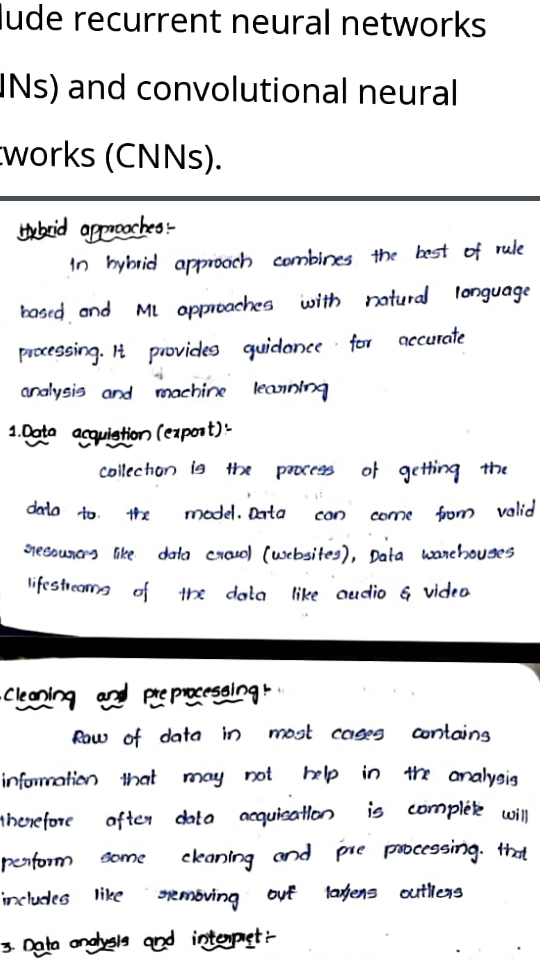 lude recurrent neural networks
NNs) and convolutional neural
tworks (CNNs).
Hybrid approaches:-
In hybrid approach combines the best of rule
based and ML approaches with natural language
processing. It provides guidance for accurate
analysis and machine learning
1.Data acquistion (export):-
collection is the process of getting the
data to the model. Data can come from valid
resources like data crawl (websites), Data warehouses
lifestreams of the data like audio & video
Cleaning and preprocessing:-
Raw of data in most cases contains
information that may not help in the analysis
therefore after data acquisation is complete will
perform some cleaning and pre processing. that
includes like removing out outliers
3. Data analysis and interpret:-